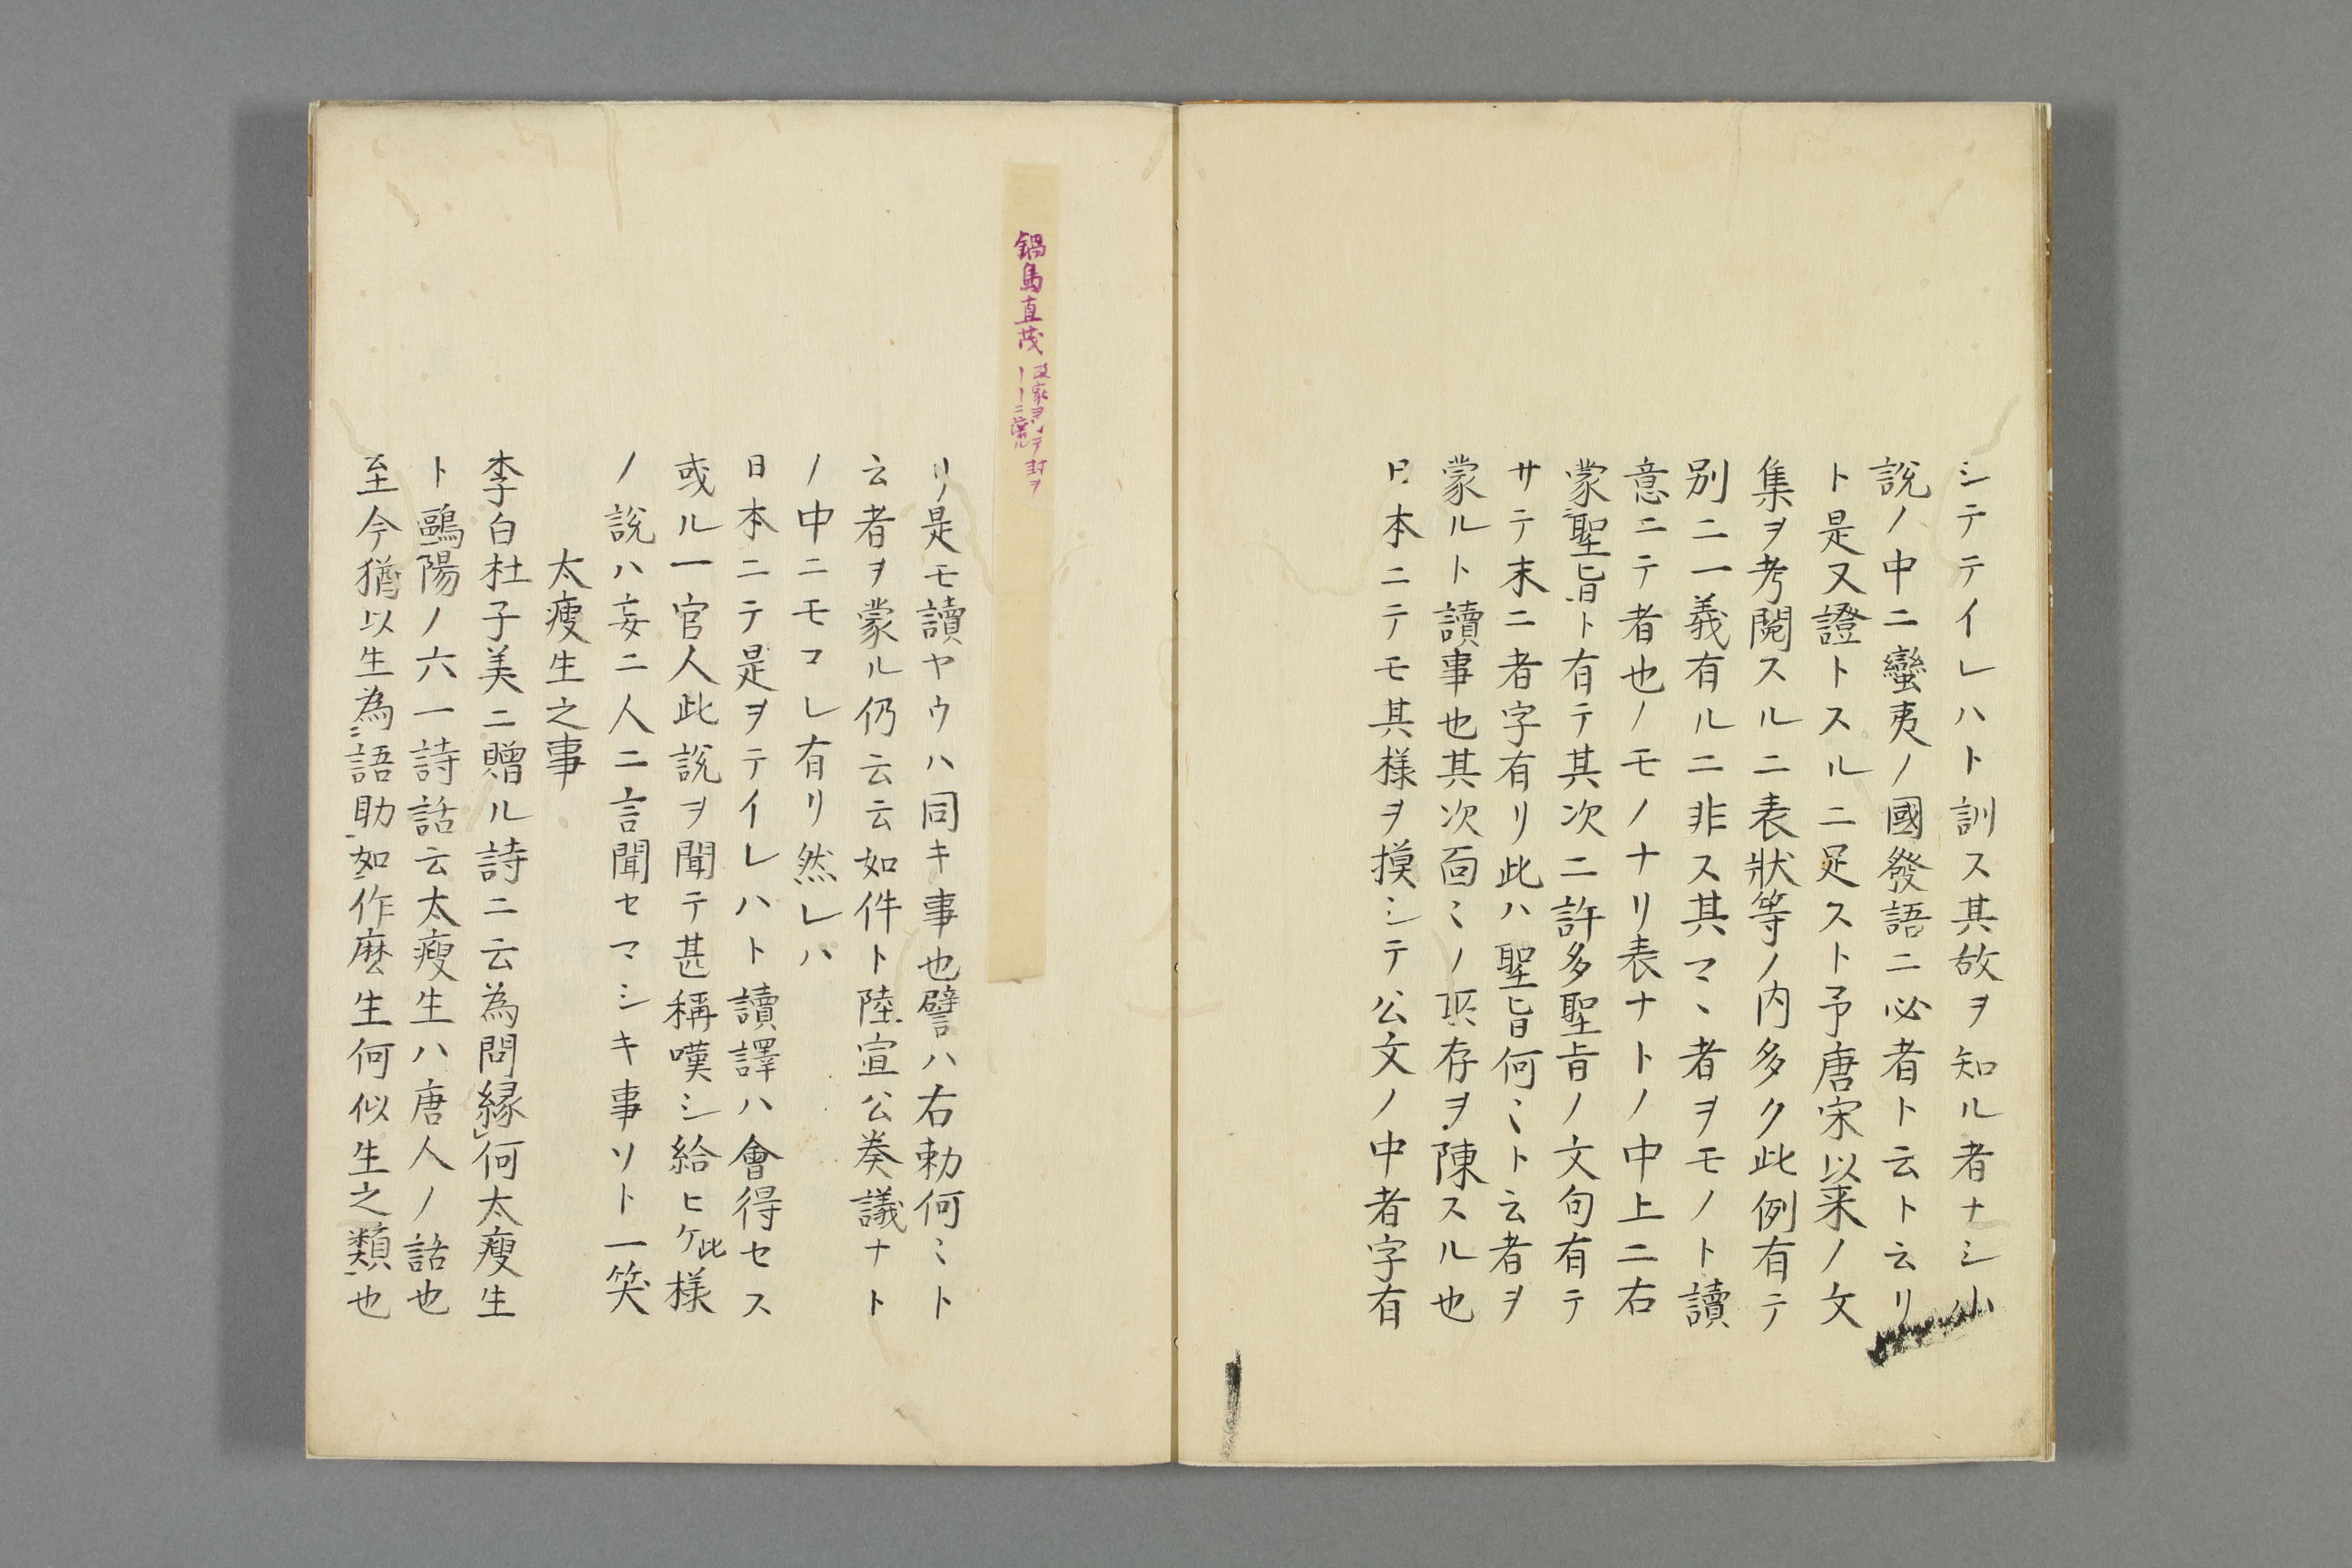 シテテイレハト訓ス其故ヲ知ル者ナシ小
説ノ中ニ蠻夷ノ國發語ニ必者ト云ト云リ
ト是又證トスルニ足ストテ予唐宋以来ノ文
集ヲ考閲スルニ表狀等ノ内多ク此例有テ
別ニ一義有ルニ非ス其マヽ者ヲモノト讀
意ニテ者也ノモノナリ表ナトノ中上ニ右
蒙聖旨ト有テ其次ニ許多聖旨ノ文句有テ
サテ末ニ者字有リ此ハ聖旨何〻ト云者ヲ
蒙ルト讀事也其次面〻ノ所存ヲ陳スル也
日本ニテモ其様ヲ摸シテ公文ノ中者字有
鍋島直茂
リ是モ讀ヤウハ同キ事也譬ハ右勅何〻ト
云者ヲ蒙ル仍云云如件ト陸宣公奏議ナト
ノ中ニモコレ有リ然レハ
日本ニテ是ヲテイレハト讀譯ハ會得セス
或ル一官人此説ヲ聞テ甚稱嘆シ給ヒケ此様
ノ説ハ妄ニ人ニ言聞セマシキ事ソト一笑
太瘦生之事
李白杜子美ニ贈ル詩ニ云為問縁何太瘦生
ト鷗陽ノ六一詩話云太瘦生ハ唐人ノ話也
至今猶以生為語助如作麼生何似生之類也